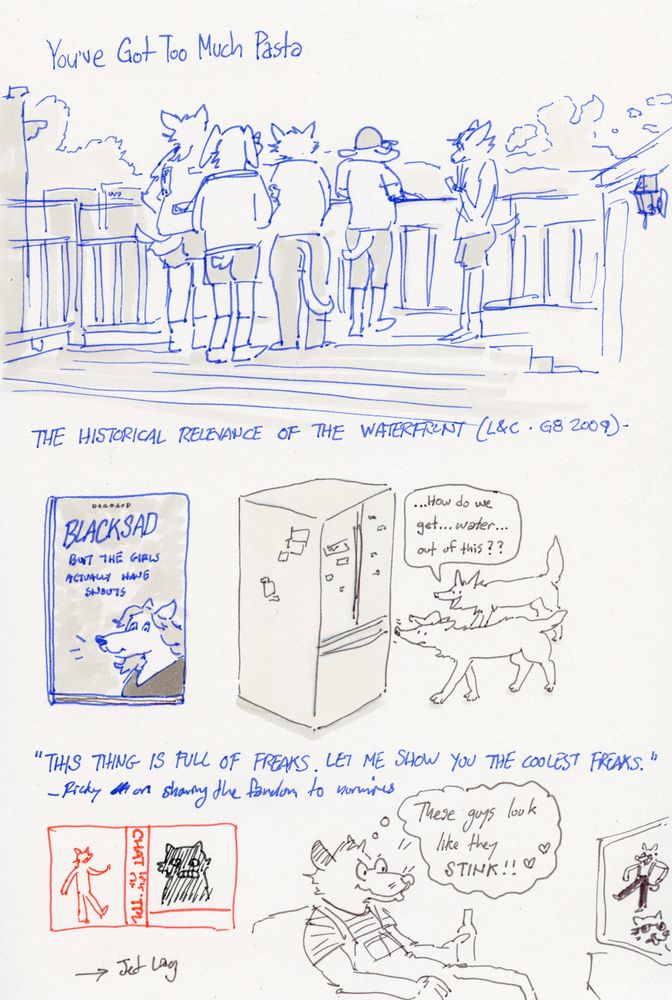 You've Got Too Much Pasta
THE HISTORICAL RELEVANCE OF THE WATERFRONT (L&C · G8 2009)-
DARGAUD
BLACKSAD
BUT THE GIRLS
ACTUALLY HAVE
SNOUTS
...How do we
get...water...
out of this??
"THIS THING IS FULL OF FREAKS. LET ME SHOW YOU THE COOLEST FREAKS."
-Ricky on showing the fandom to normies
These guys look
like they
STINK!!
CHAT
→ Jet Lag